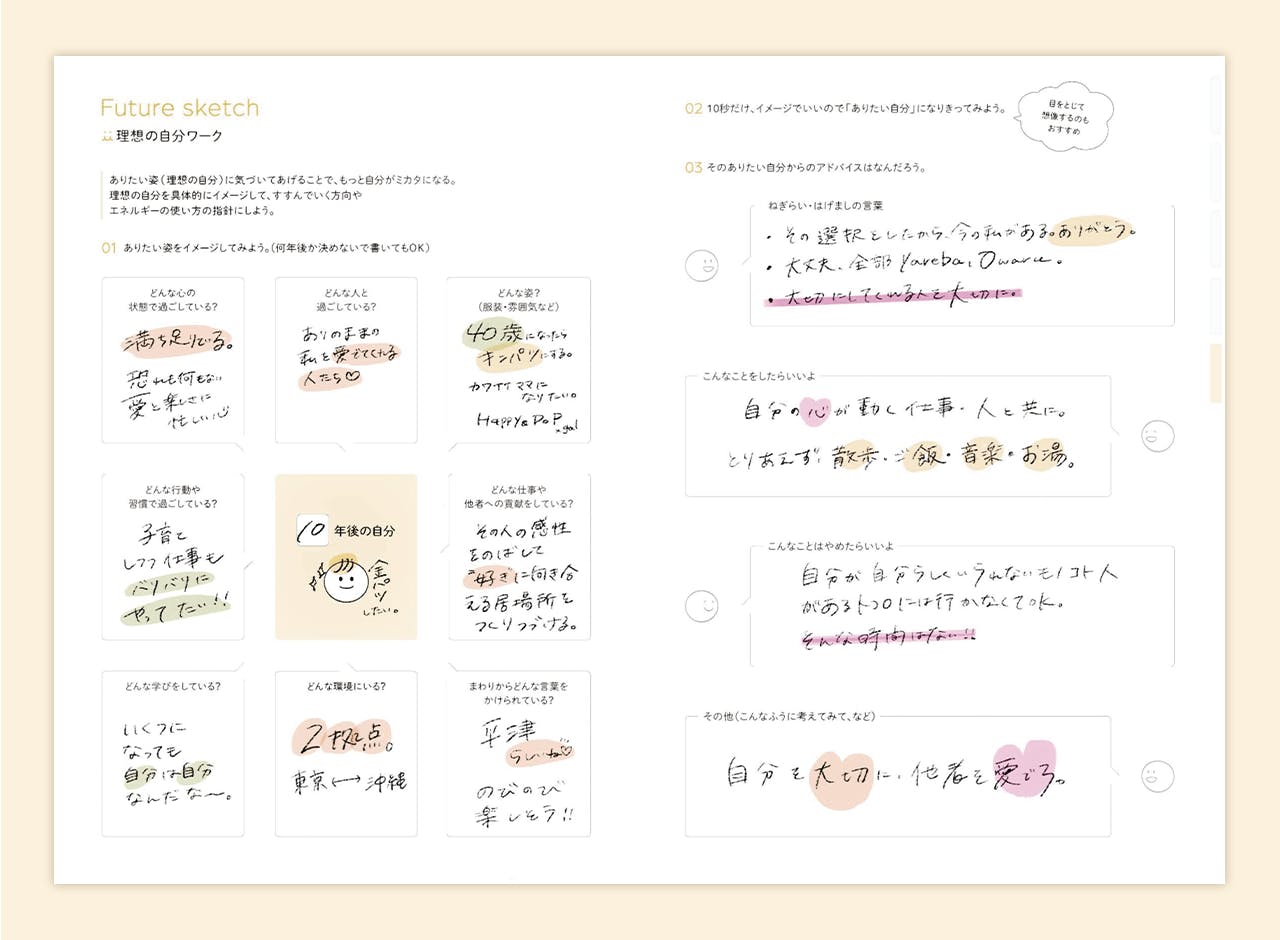 Future sketch
理想の自分ワーク
ありたい姿（理想の自分）に気づいてあげることで、もっと自分がミカタになる。
理想の自分を具体的にイメージして、すすんでいく方向や
エネルギーの使い方の指針にしよう。
01 ありたい姿をイメージしてみよう。（何年後か決めないで書いてもOK）
どんな心の
状態で過ごしている?
満ち足りてる。
恐れも何もない
愛と楽しさに
忙しい
どんな人と
過ごしている?
ありのままの
私を愛でてくれる
人たち♡
どんな姿?
（服装・雰囲気など）
40歳になったら
キンパツにする。
カワイイママに
なりたい。
Happy & PoP
×gal
どんな行動や
習慣で過ごしている?
子育て
しつつ仕事も
バリバリに
やってたい!!
10 年後の自分
金パツ
したい。
どんな仕事や
他者への貢献をしている?
その人の感性
をのばして
"好き"に向き合
える居場所を
つくりつづける。
どんな学びをしている?
いくつに
なっても
自分は自分
なんだな〜。
どんな環境にいる?
2拠点。
東京⟷沖縄
まわりからどんな言葉を
かけられている?
平津
らしいね♡
のびのび
楽しそう!!
02 10秒だけ、イメージでいいので「ありたい自分」になりきってみよう。
目をとじて
想像するのも
おすすめ
03 そのありたい自分からのアドバイスはなんだろう。
ねぎらい・はげましの言葉
・その選択をしたから、今の私がある。ありがとう。
・大丈夫、全部 Yareba, Owaru.
・大切にしてくれる人を大切に。
こんなことをしたらいいよ
自分の心が動く仕事・人と共に。
とりあえず、散歩・ご飯・音楽・お湯。
こんなことはやめたらいいよ
自分が自分らしくいられないモノコト人
があるトコロには行かなくてOK。
そんな時間はない!!
その他（こんなふうに考えてみて、など）
自分を大切に、他者を愛でろ。